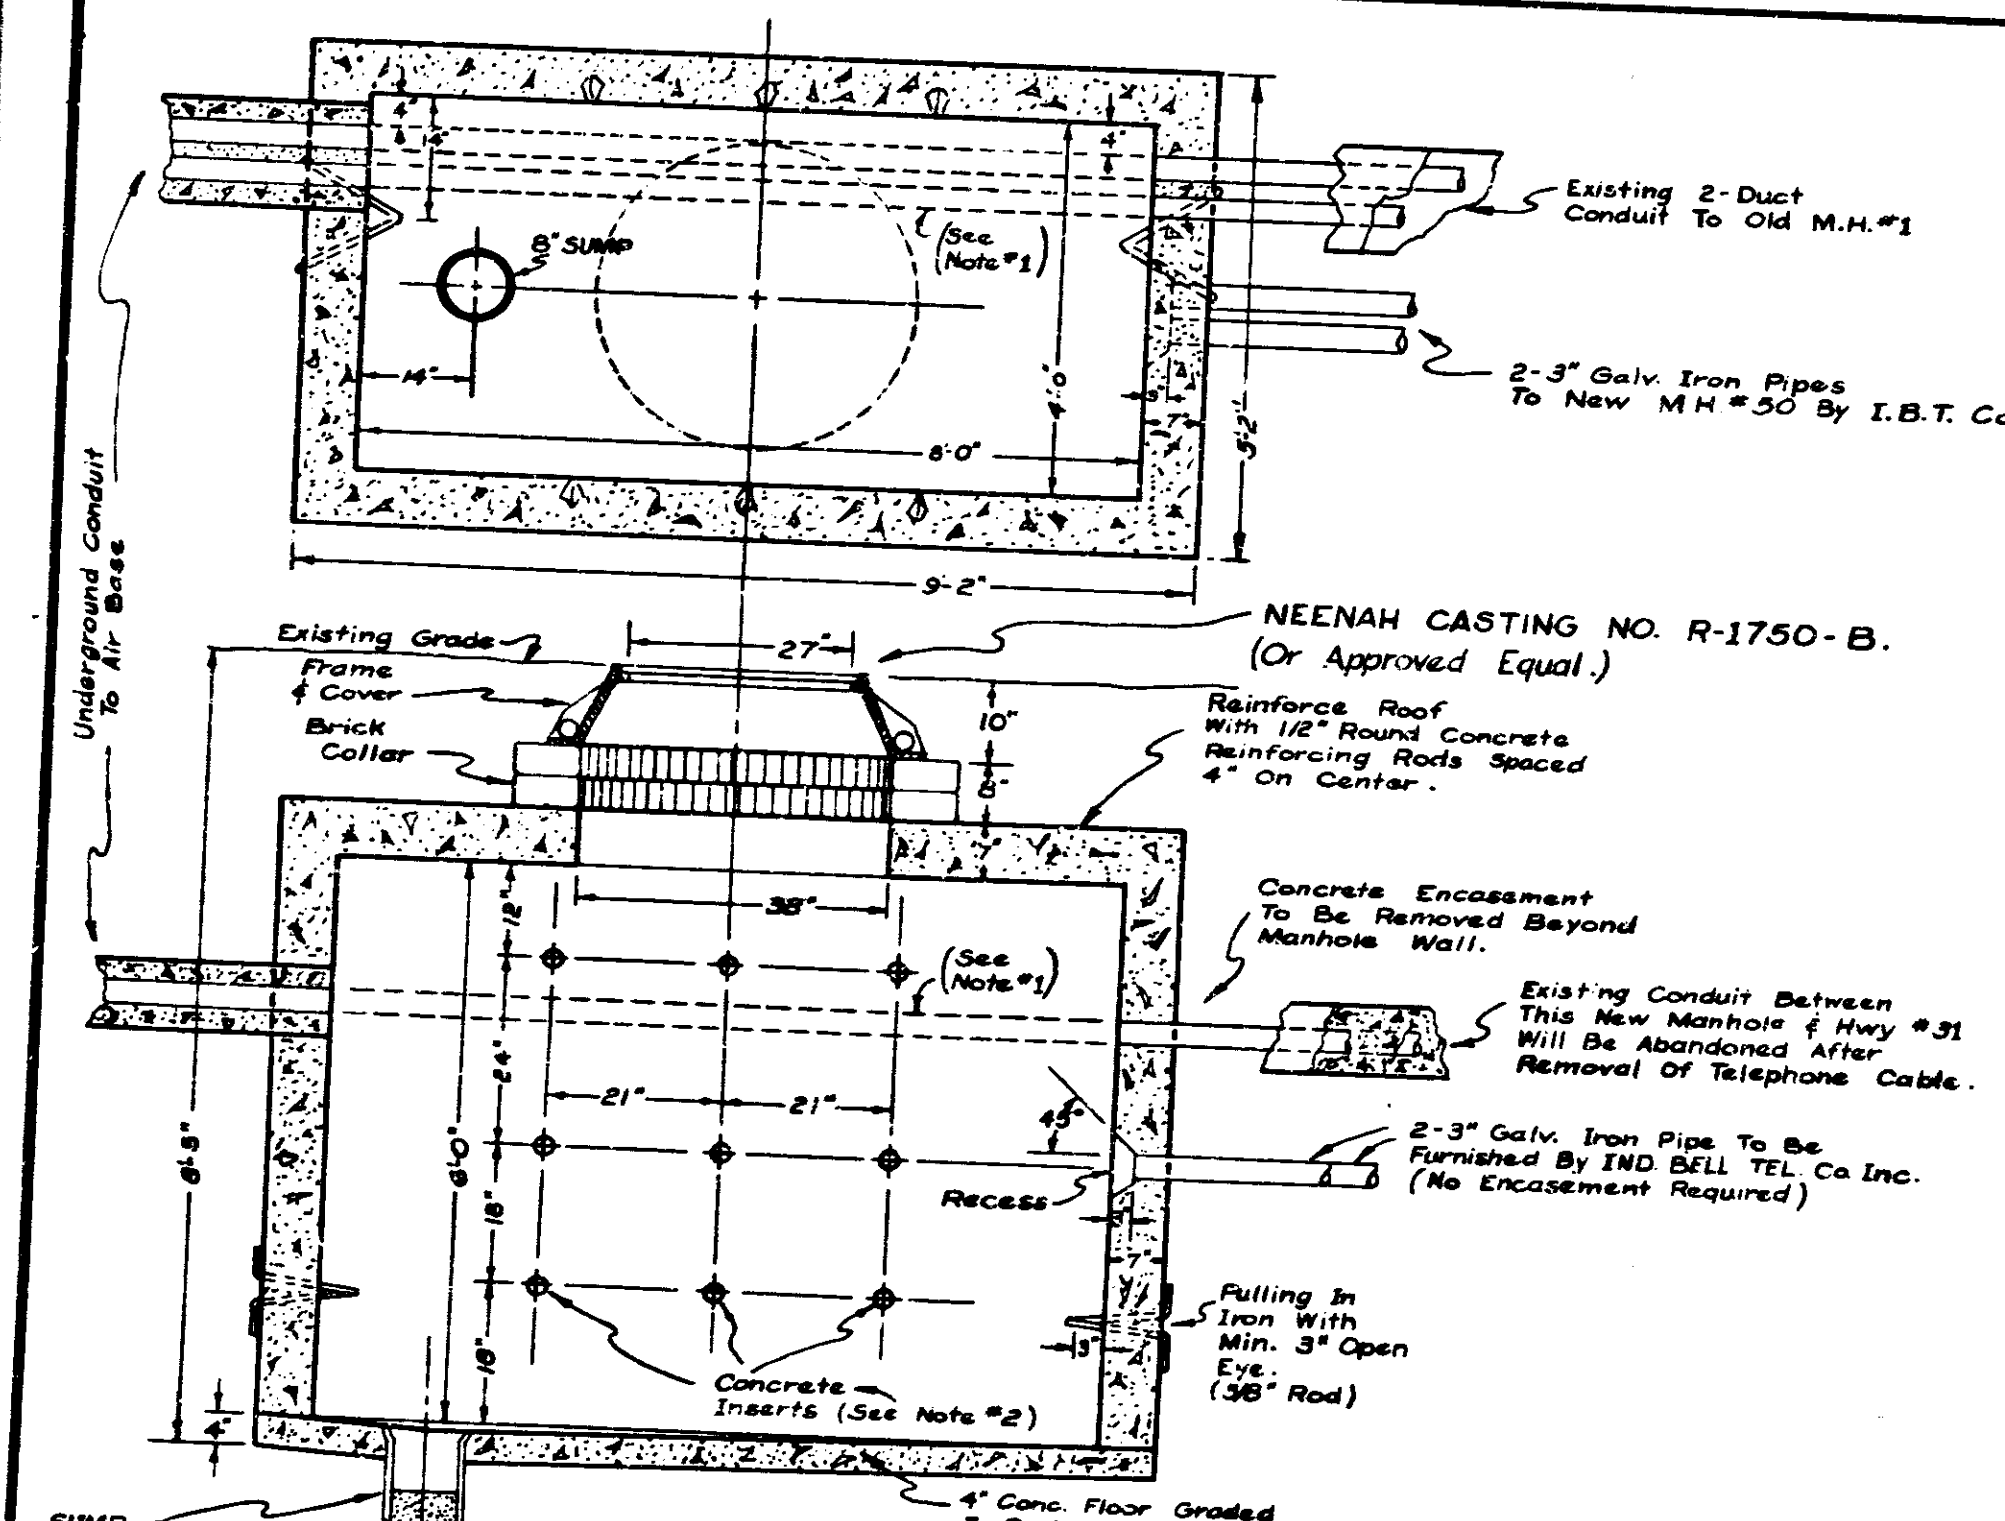 4"
14"
4"
8" SUMP
(See
Note #1)
Existing 2-Duct
Conduit To Old M.H. #1
14"
4'-0"
8'-0"
3"
7"
5'-2"
2-3" Galv. Iron Pipes
To New M H #50 By I.B.T. Co
9'-2"
Underground Conduit
To Air Base
Existing Grade
27"
NEENAH CASTING NO. R-1750-B.
(Or Approved Equal.)
Frame
& Cover
Brick
Collar
10"
8"
7"
Reinforce Roof
With 1/2" Round Concrete
Reinforcing Rods Spaced
4" On Center.
38"
12"
(See
Note #1)
Concrete Encasement
To Be Removed Beyond
Manhole Wall.
Existing Conduit Between
This New Manhole & Hwy #31
Will Be Abandoned After
Removal Of Telephone Cable.
24"
21"
21"
45°
2-3" Galv. Iron Pipe To Be
Furnished By IND. BELL TEL. Co Inc.
(No Encasement Required)
Recess
7"
18"
18"
3"
Pulling In
Iron With
Min. 3" Open
Eye.
(5/8" Rod)
Concrete
Inserts (See Note #2)
4"
SUMP
4" Conc. Floor Graded